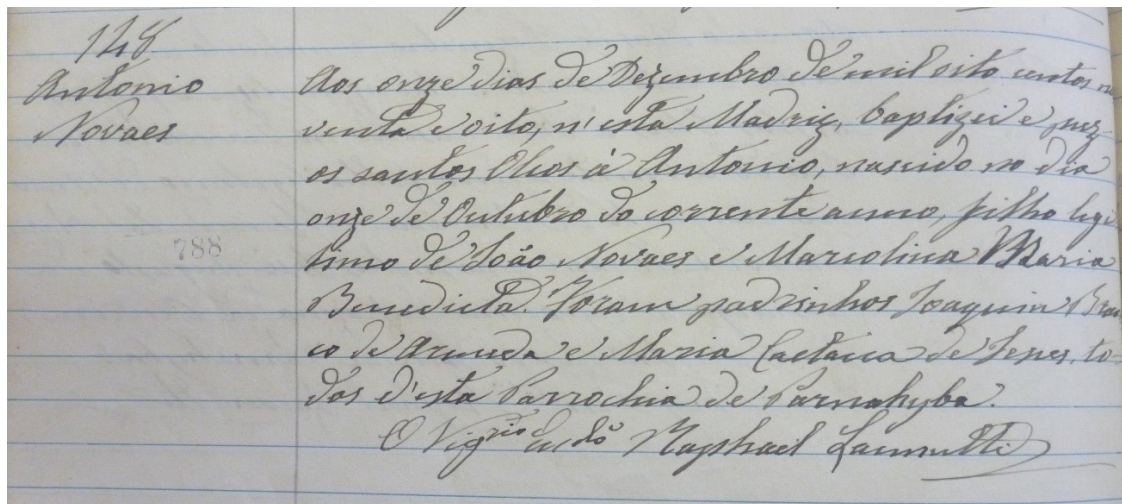 148
Antonio
Novaes
788
Aos onze dias de Dezembro de mil oito centos no
venta e oito, n'esta Madriz, baptizei e puz
os santos Oleos à Antonio, nascido no dia
onze de Outubro do corrente anno, filho legi
timo de João Novaes e Marcolina Maria
Benedicta. Foram padrinhos Joaquim Bran
co de Arruda e Maria Caetana de Jesus, to-
dos d'esta Parrochia de Parnahyba.
O Vigrio Raphael